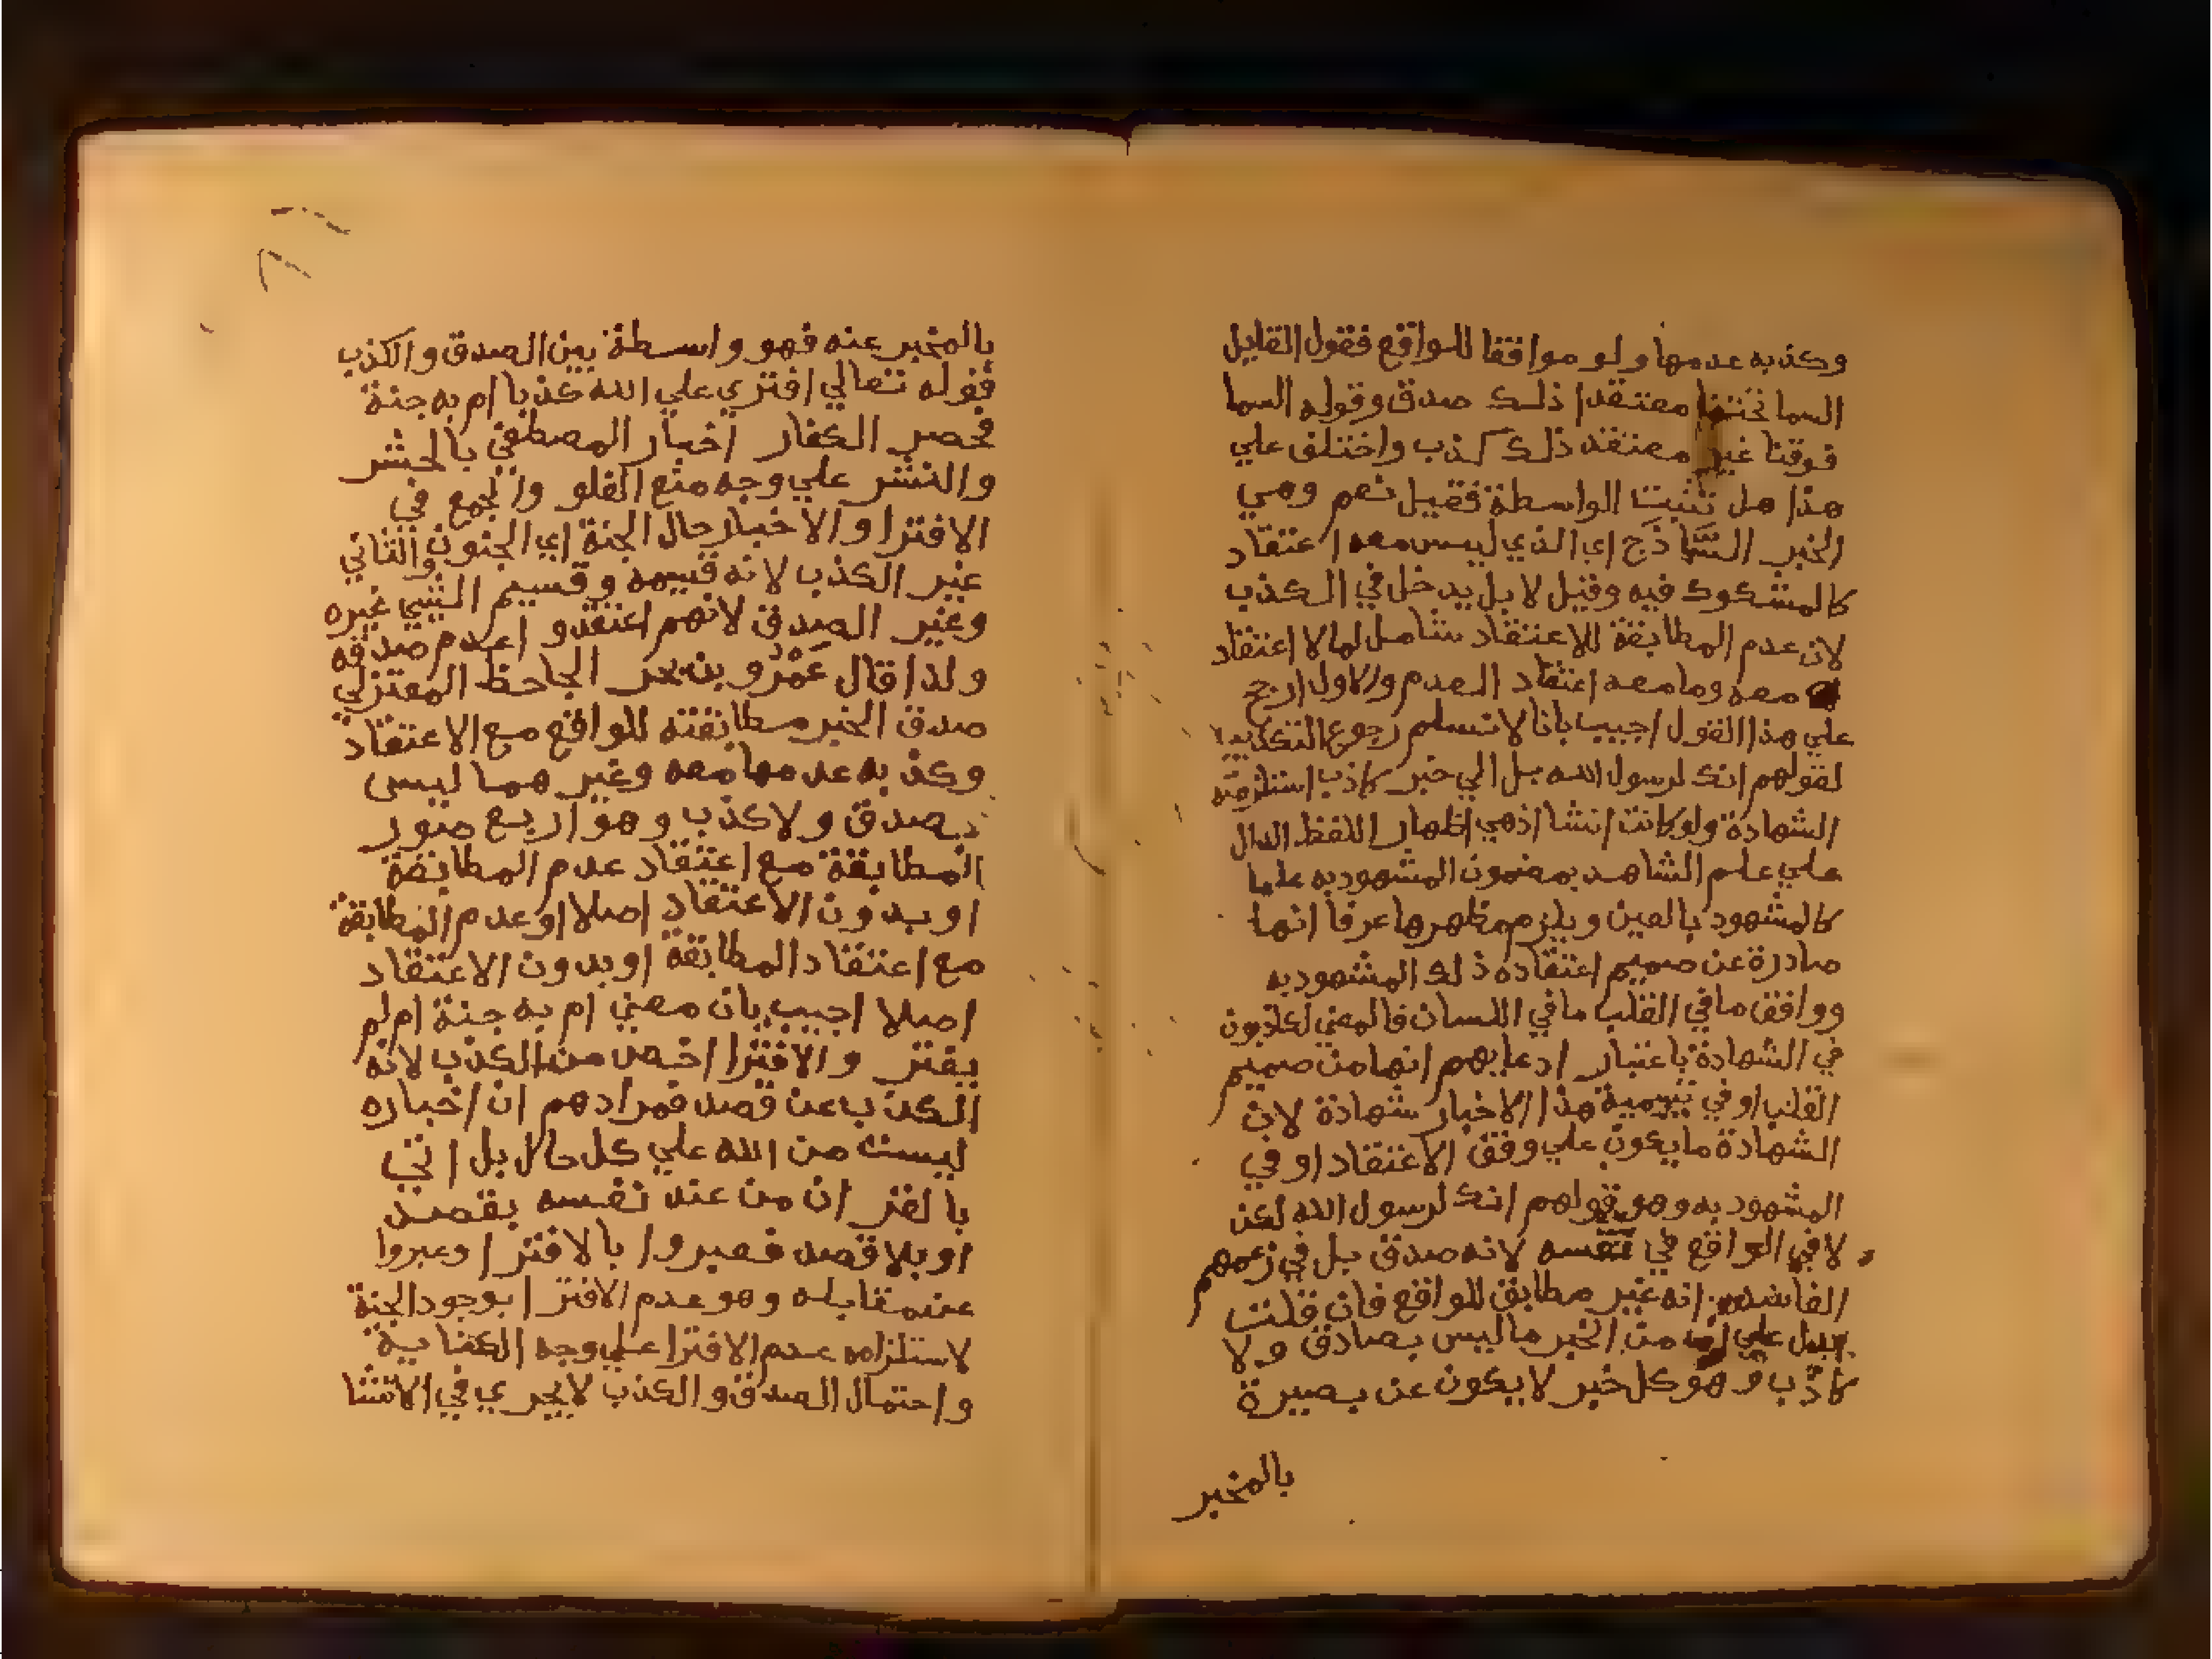 وكذبه عدمها ولو موافقا للواقع فقول القايل
السما تحتنا معتقدا ذلك صدق وقوله السما
فوقنا غير معتقد ذلك كذب واختلف علي
هذا هل تثبت الواسطة فقيل نعم وهي
الخبر الساذج اي الذي ليس معه اعتقاد
كالمشكوك فيه وقيل لا بل يدخل في الكذب
لان عدم المطابقة للاعتقاد شامل لما لا اعتقاد
معه وما معه اعتقاد العدم والاول ارجح
علي هذا القول اجيب بانا لا نسلم رجوع التكذيب
لقولهم انك لرسول الله بل الي خبر كاذب استلزمته
الشهادة ولو كانت انشا اذهي اظهار اللفظ الدال
علي علم الشاهد بمضمون المشهود به علما
كالمشهود بالعين ويلزم مظهرها عرفا انها
صادرة عن صميم اعتقاده ذلك المشهود به
ووافق ما في القلب ما في اللسان فالمعني لكاذبون
في الشهادة باعتبار ادعايهم انها من صميم
القلب او في تسمية هذا الاخبار شهادة لان
الشهادة ما يكون علي وفق الاعتقاد او في
المشهود به وهو قولهم انك لرسول الله لكن
لا في الواقع في نفسه لانه صدق بل في زعمهم
الفاسد انه غير مطابق للواقع فان قلت
يدل علي ان من الخبر ما ليس بصادق ولا
كاذب وهو كل خبر لا يكون عن بصيرة
بالمخبر
بالمخبر عنه فهو واسطة بين الصدق والكذب
قوله تعالي افتري علي الله كذبا ام به جنة
فحصر الكفار اخبار المصطفي بالحشر
والنشر علي وجه منع الخلو والجمع في
الافترا والاخبار حال الجنة اي الجنون والثاني
غير الكذب لانه قسيمه وقسيم الشي غيره
وغير الصدق لانهم اعتقدوا عدم صدقه
ولذا قال عمرو بن بحر الجاحظ المعتزلي
صدق الخبر مطابقته للواقع مع الاعتقاد
وكذبه عدمها معه وغيرهما ليس
بصدق ولا كذب وهو اربع صور
المطابقة مع اعتقاد عدم المطابقة
او بدون الاعتقاد اصلا او عدم المطابقة
مع اعتقاد المطابقة او بدون الاعتقاد
اصلا اجيب بان معني ام به جنة ام لم
يفتر والافترا اخص من الكذب لانه
الكذب عن قصد فمرادهم ان اخباره
ليست من الله علي كل حال بل اتي
بالقران من عند نفسه بقصد
او بلا قصد فعبروا بالافترا وعبروا
عن مقابله وهو عدم الافترا بوجود الجنة
لاستلزامه عدم الافترا علي وجه الكناية
واحتمال الصدق والكذب لا يجري في الانشا